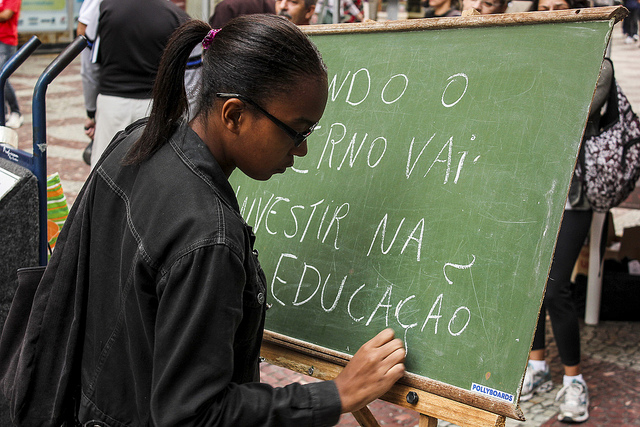 NDO O
ERNO VAI
INVESTIR NA
EDUCAÇÃO
POLLYBOARDS